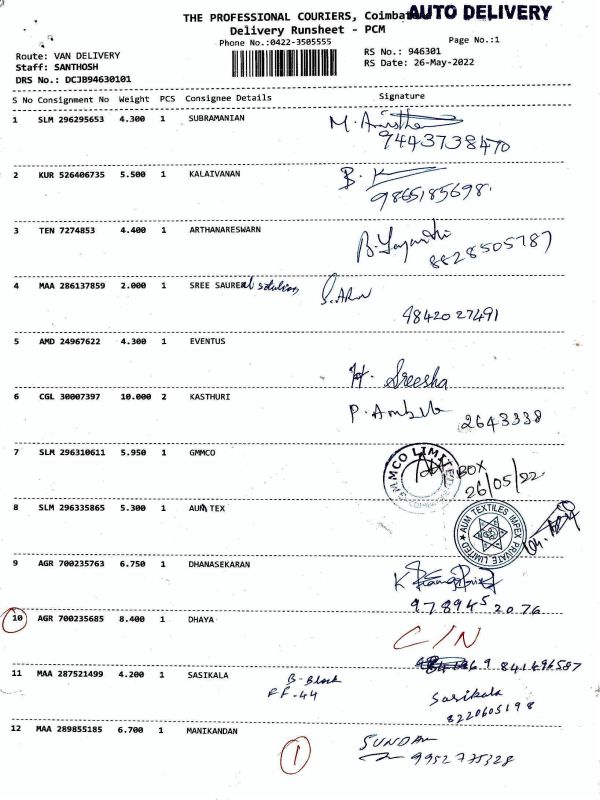 AUTO DELIVERY
THE PROFESSIONAL COURIERS, Coimbat
Delivery Runsheet - PCM
Phone No.:0422-3505555
Page No.:1
Route: VAN DELIVERY
Staff: SANTHOSH
DRS No.: DCJB94630101
RS No.: 946301
RS Date: 26-May-2022
S No Consignment No Weight PCS Consignee Details Signature
1 SLM 296295653 4.300 1 SUBRAMANIAN
9443738470
2 KUR 526406735 5.500 1 KALAIVANAN
9865185698.
3 TEN 7274853 4.400 1 ARTHANARESWARN
8828505787
4 MAA 286137859 2.000 1 SREE SAUREN
9842027491
5 AMD 24967622 4.300 1 EVENTUS
H. Sreesha
6 CGL 30007397 10.000 2 KASTHURI
2643338
7 SLM 296310611 5.950 1 GMMCO
BOX
26/05/22
8 SLM 296335865 5.300 1 AUM TEX
AUM TEXTILES IMPEX PRIVATE LIMITED
9 AGR 700235763 6.750 1 DHANASEKARAN
9789452076
10 AGR 700235685 8.400 1 DHAYA
C/N
841496587
11 MAA 287521499 4.200 1 SASIKALA
B-Block
FF-44
Sasikala
8220605198
12 MAA 289855185 6.700 1 MANIKANDAN
1
SUNDAR
9952775328